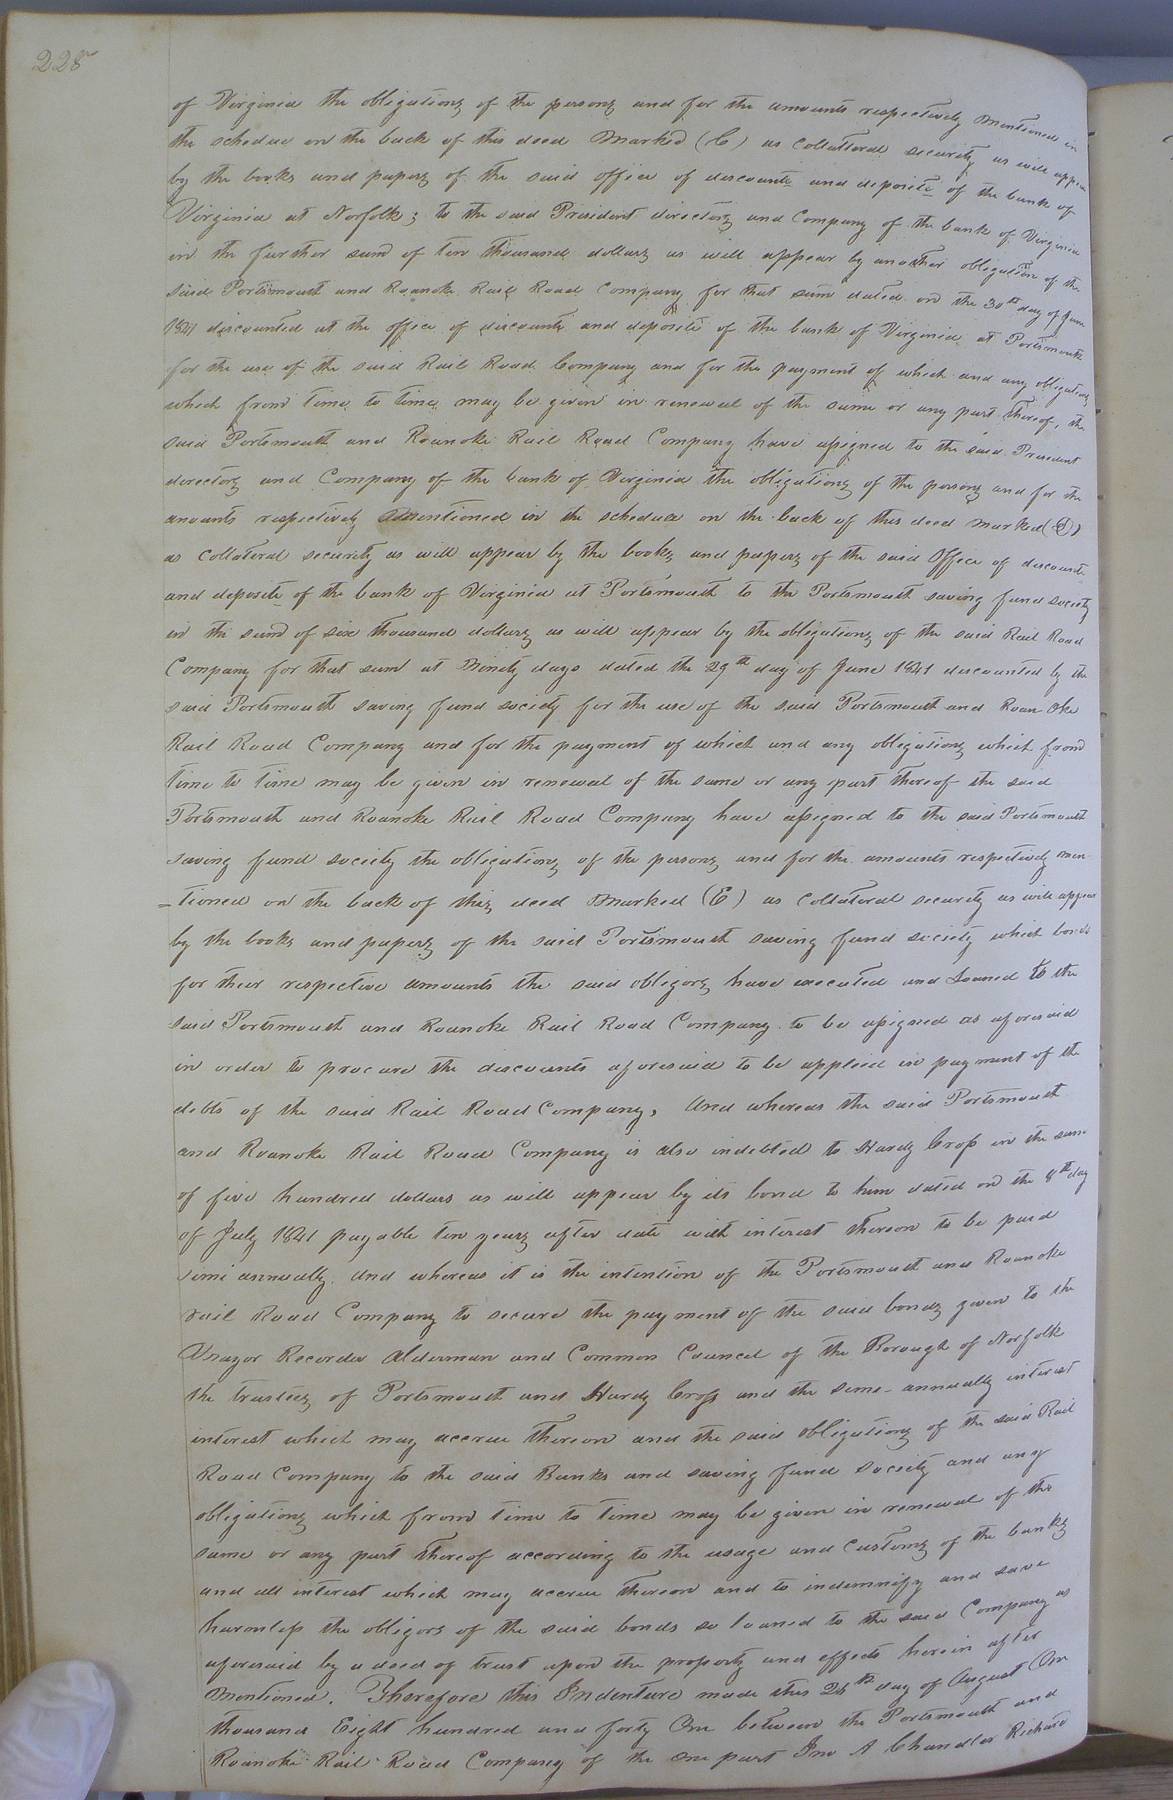 228
of Virginia the obligations of the persons and for the amounts respectively mentioned in
the schedue on the back of this deed marked (C) as collatteral security as will appear
by the books and papers of the said office of discounte and deposite of the bank of
Virginia at Norfolk; to the said President directors and Company of the bank of Virginia
in the further sum of ten thousand dollars as will appear by another obligation of the
said Portsmouth and Roanoke Rail Road Company for that sum dated on the 30th day of June
1841 discounted at the office of discounte and deposite of the bank of Virginia at Portsmouth
for the use of the said Rail Road Company and for the payment of which and any obligations
which from time to time may be given in renewal of the same or any part thereof, the
said Portsmouth and Roanoke Rail Road Company have assigned to the said President
directors and Company of the bank of Virginia the obligations of the persons and for the
amounts respectively mentioned in the schedue on the back of this deed marked (D)
as collateral security as will appear by the books and papers of the said Office of discounte
and deposite of the bank of Virginia at Portsmouth to the Portsmouth saving fund society
in the sum of six thousand dollars as will appear by the obligations of the said Rail Road
Company for that sum at Ninety days dated the 29th day of June 1841 discounted by the
said Portsmouth saving fund society for the use of the said Portsmouth and Roan Oke
Rail Road Company and for the payment of which and any obligations which from
time to time may be given in renewal of the same or any part thereof the said
Portsmouth and Roanoke Rail Road Company have assigned to the said Portsmouth
saving fund society the obligations of the persons and for the amounts respectively men
=tioned on the back of this deed marked (E) as collateral security as will appear
by the books and papers of the said Portsmouth saving fund society which bonds
for their respective amounts the said obligors have executed and Loaned to the
said Portsmouth and Roanoke Rail Road Company to be assigned as aforesaid
in order to procure the discounts aforesaid to be applied in payment of the
debts of the said Rail Road Company, And whereas the said Portsmouth
and Roanoke Rail Road Company is also indebted to Hardy Cross in the sum
of five hundred dollars as will appear by its bond to him dated on the 8th day
of July 1841 payable ten years after date with interest thereon to be paid
simi annually. And whereas it is the intention of the Portsmouth and Roanoke
rail Road Company to secure the payment of the said bonds given to the
Mayor Recorder Alderman and Common Council of the Borough of Norfolk
the trustees of Portsmouth and Hardy Cross and the semi-annually interest
interest which may accrue thereon and the said obligations of the said Rail
Road Company to the said Banks and saving fund society and any
obligations which from time to time may be given in renewal of the
same or any part thereof according to the usage and customs of the banks
and all interest which may accrue thereon and to indemnify and save
harmless the obligors of the said bonds so loaned to the said Company as
aforesaid by a deed of trust upon the property and effects herein after
mentioned. Therefore this Indenture made this 28th day of August One
thousand Eight hundred and forty One between the Portsmouth and
Roanoke Rail Road Company of the one part Jno A Chandler Richard